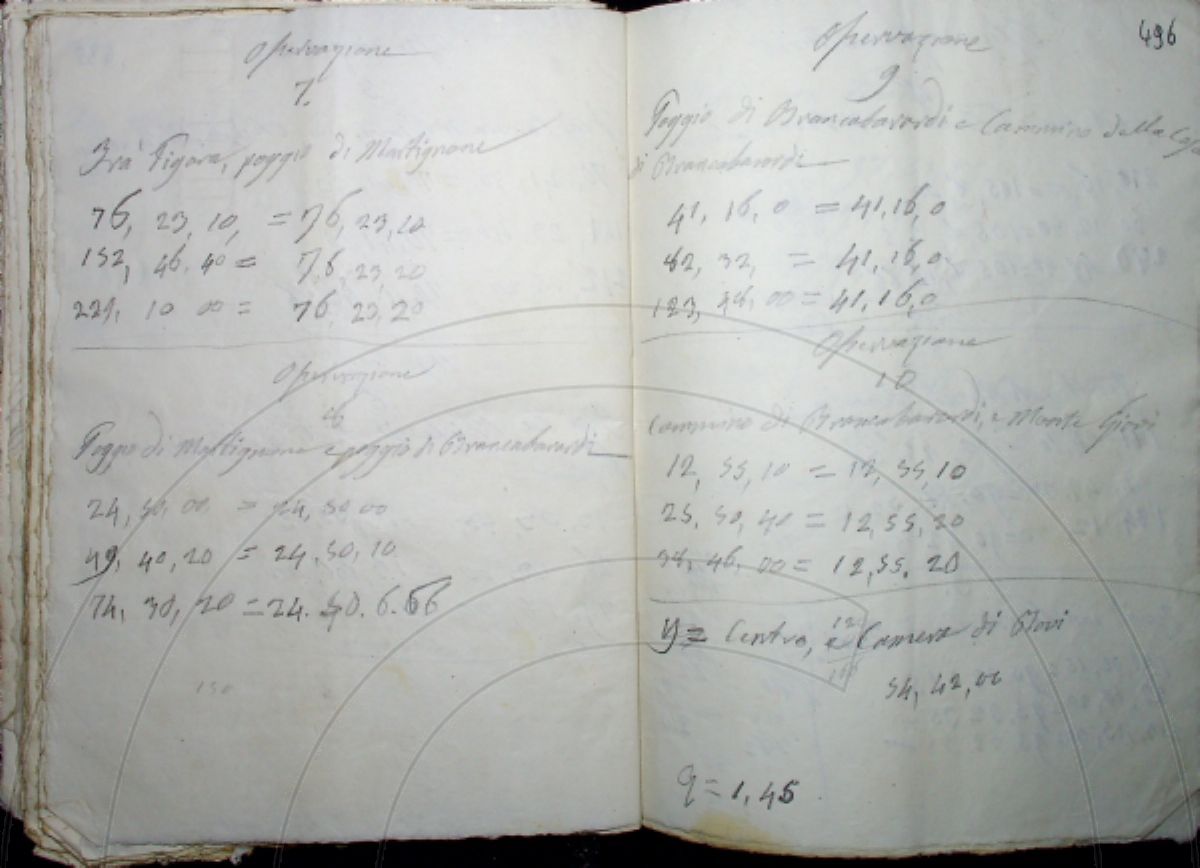 Osservazione
7.
Frà Figara, poggio di Martignone
76, 23, 10, = 76, 23, 10
152, 46. 40 = 76, 23, 20
229, 10 00 = 76, 23, 20
Osservazione
8
Poggio di Martignone e poggio di Brancabavardi
24, 50, 00 = 24, 50 00
49, 40, 20 = 24. 50, 10
74, 30, 20 = 24. 50. 6. 66
150
496
Osservazione
9
Poggio di Brancabavardi e Cammino della Casa
di Brancabavardi
41, 16, 0 = 41, 16, 0
82, 32, = 41, 16, 0
123, 48, 00 = 41, 16, 0
Osservazione
10
Cammino di Brancabavardi, e Monte Giovi
12, 55, 10 = 12, 55, 10
25, 50, 40 = 12, 55, 20
38, 46, 00 = 12, 55, 20
y = Centro, e Camera di Giovi
54, 42, 00
q = 1, 45